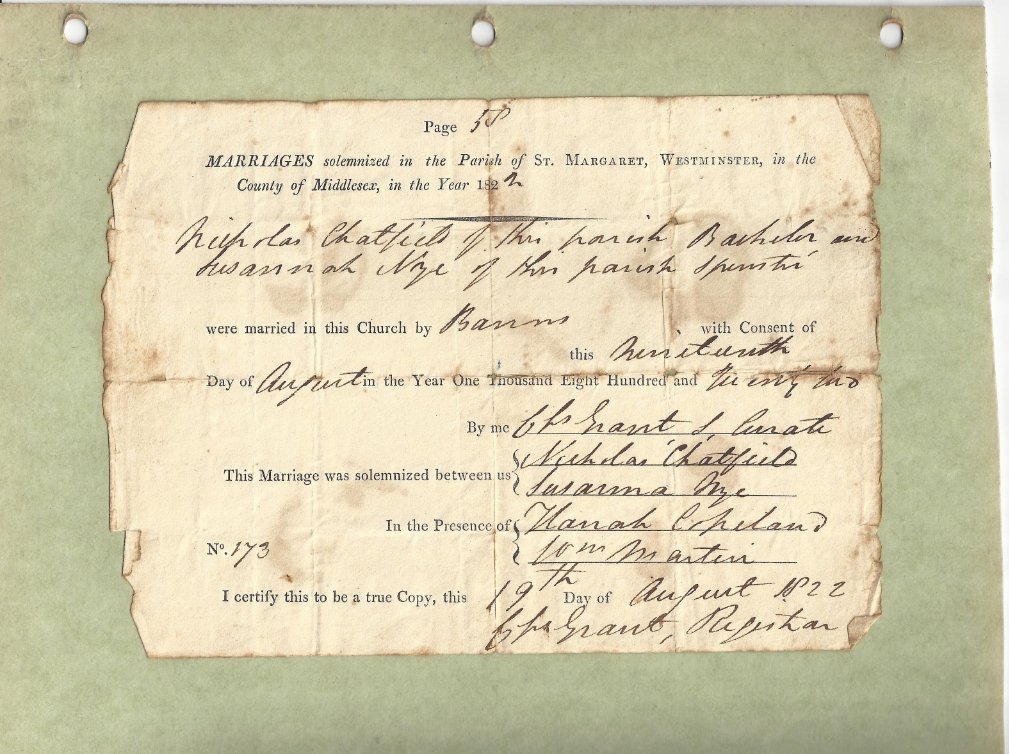 Page 58
MARRIAGES solemnized in the Parish of ST. MARGARET, WESTMINSTER, in the
County of Middlesex, in the Year 1822
Nicholas Chatfield of this parish Bachelor and
Susannah Nye of this parish Spinster
were married in this Church by Banns with Consent of
this Nineteenth
Day of August in the Year One Thousand Eight Hundred and Twenty two
By me Chs Grant, Curate
Nicholas Chatfield
This Marriage was solemnized between us
Susanna Nye
In the Presence of Hanah Copeland
Wm Martin
No. 173
I certify this to be a true Copy, this 19th Day of August 1822
Chs Grant, Registrar